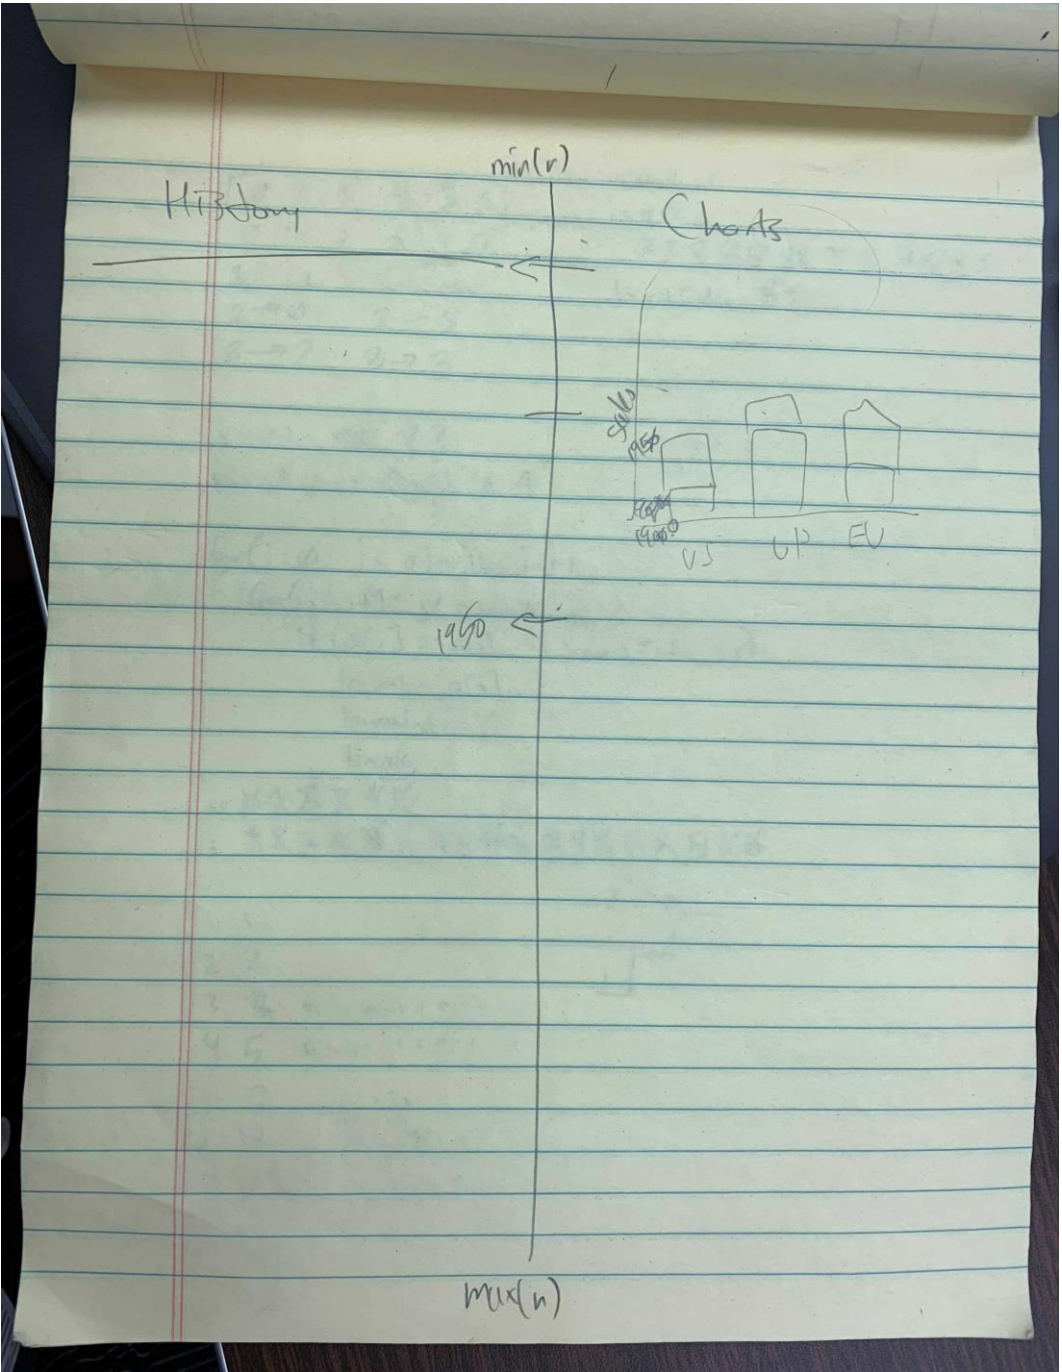 min(r)
History
Charts
Sales
1950
1900
US
UP
EU
1950
max(n)